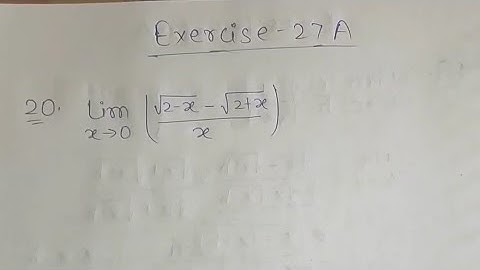 Exercise-27A
20. Lim x→0 (√2-x - √2+x / x)